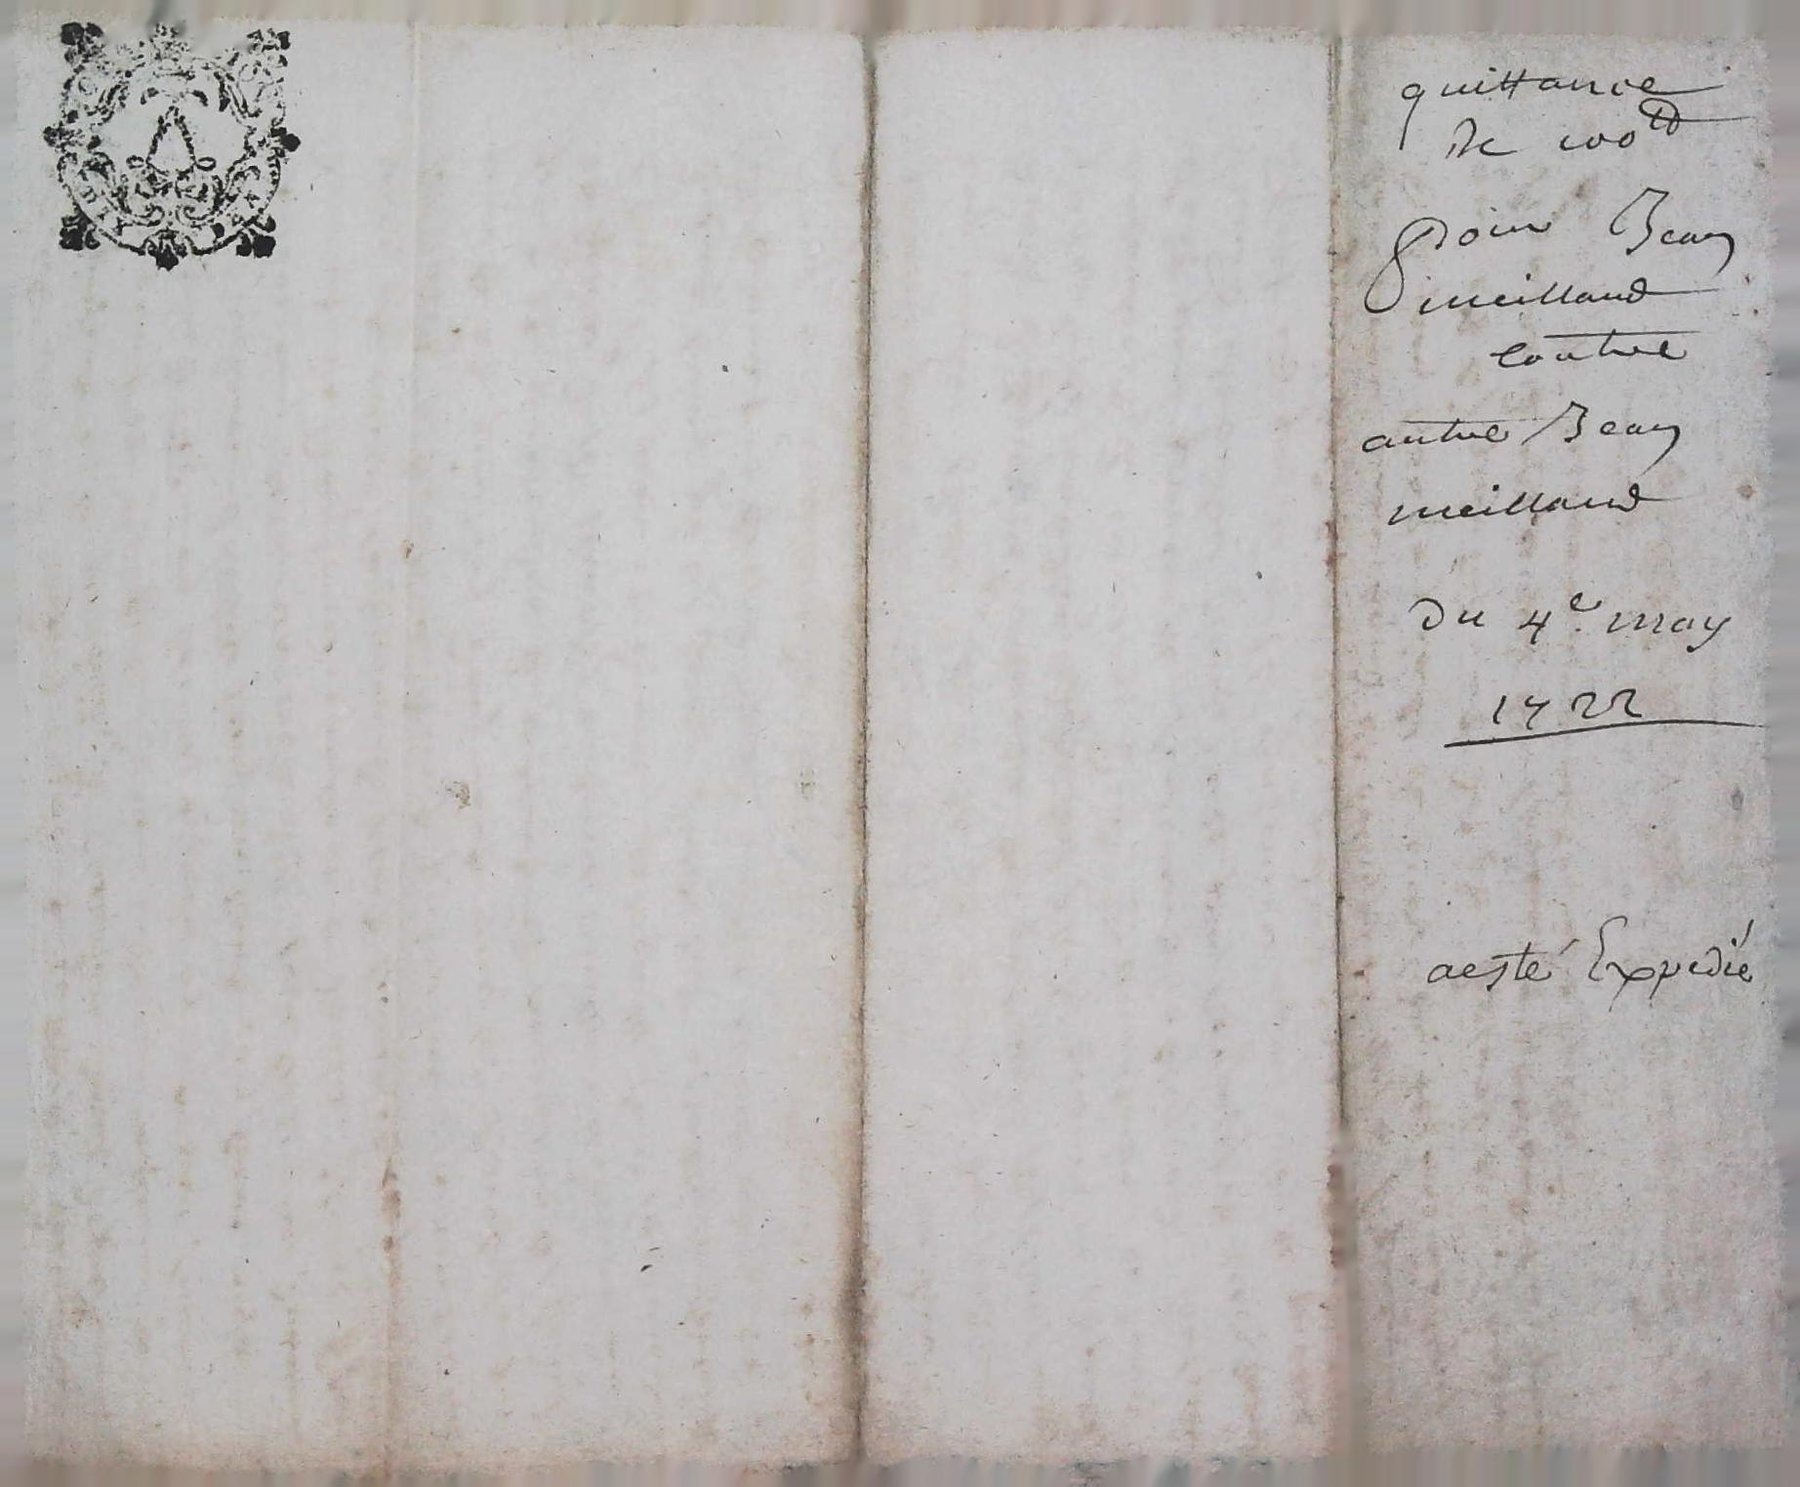 quittance
de 100 ₶
pour Jean
meilland
contre
autre Jean
meilland
Du 4e. may
1722
aesté Expedié